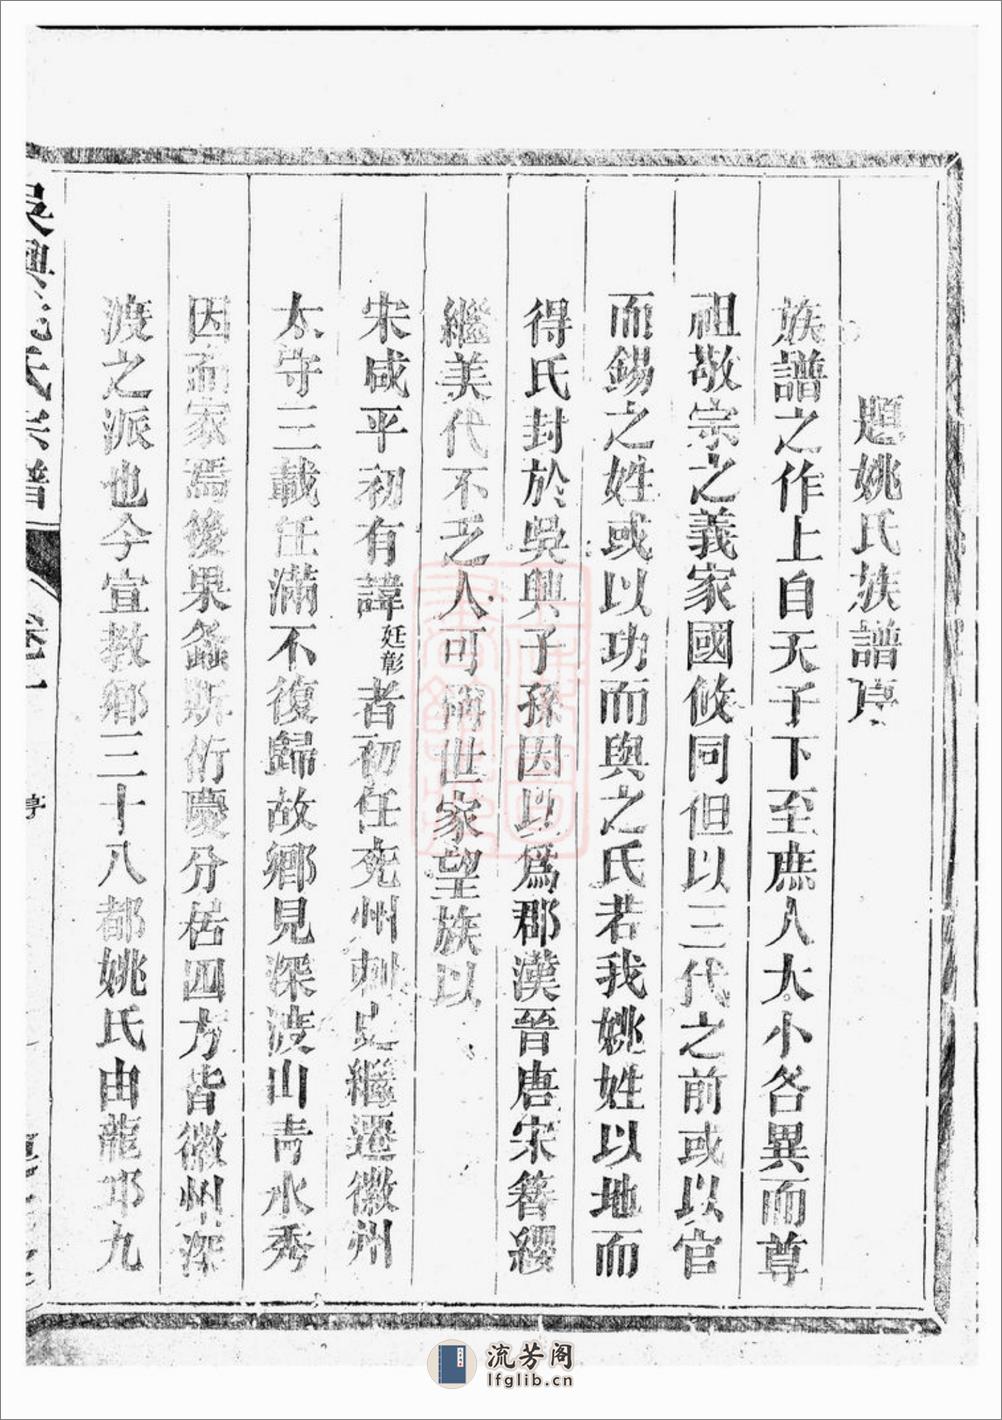 題姚氏族譜序
族譜之作上自天子下至庶人大小各異而尊
祖敬宗之義家國攸同但以三代之前或以官
而錫之姓或以功而與之氏若我姚姓以地而
得氏封於吳興子孫因以爲郡漢晉唐宋簪纓
繼美代不乏人可稱世家望族以
宋咸平初有諱廷彰者初任兖州刺史繼遷徽州
太守三載任滿不復歸故鄉見深渡山青水秀
因而家焉後果螽斯衍慶分居四方皆徽州深
渡之派也今宣教鄉三十八都姚氏由龍邛九
吳興姚氏宗譜
卷一
序
流芳阁
lfglib.cn